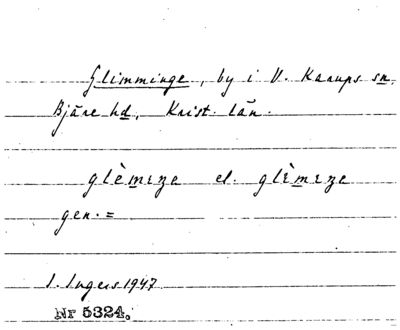 Glimminge, by i V. Karups sn.
Bjäre hd, Krist. län.
glèmıŋe el. glèmıŋe
gen. =
I. Ingers 1947
Nr 5324.